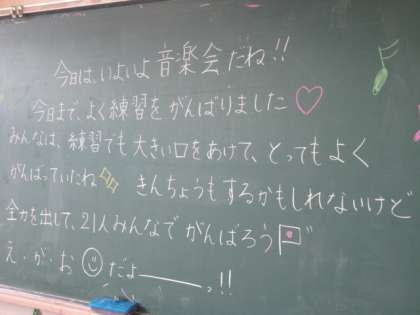 今日は、いよいよ音楽会だね!!
今日まで、よく練習をがんばりました♡
みんなは、練習でも大きい口をあけて、とってもよく
がんばっていたね きんちょうもするかもしれないけど
全力を出して、21人みんなでがんばろう
え・が・お☺だよーーっ!!